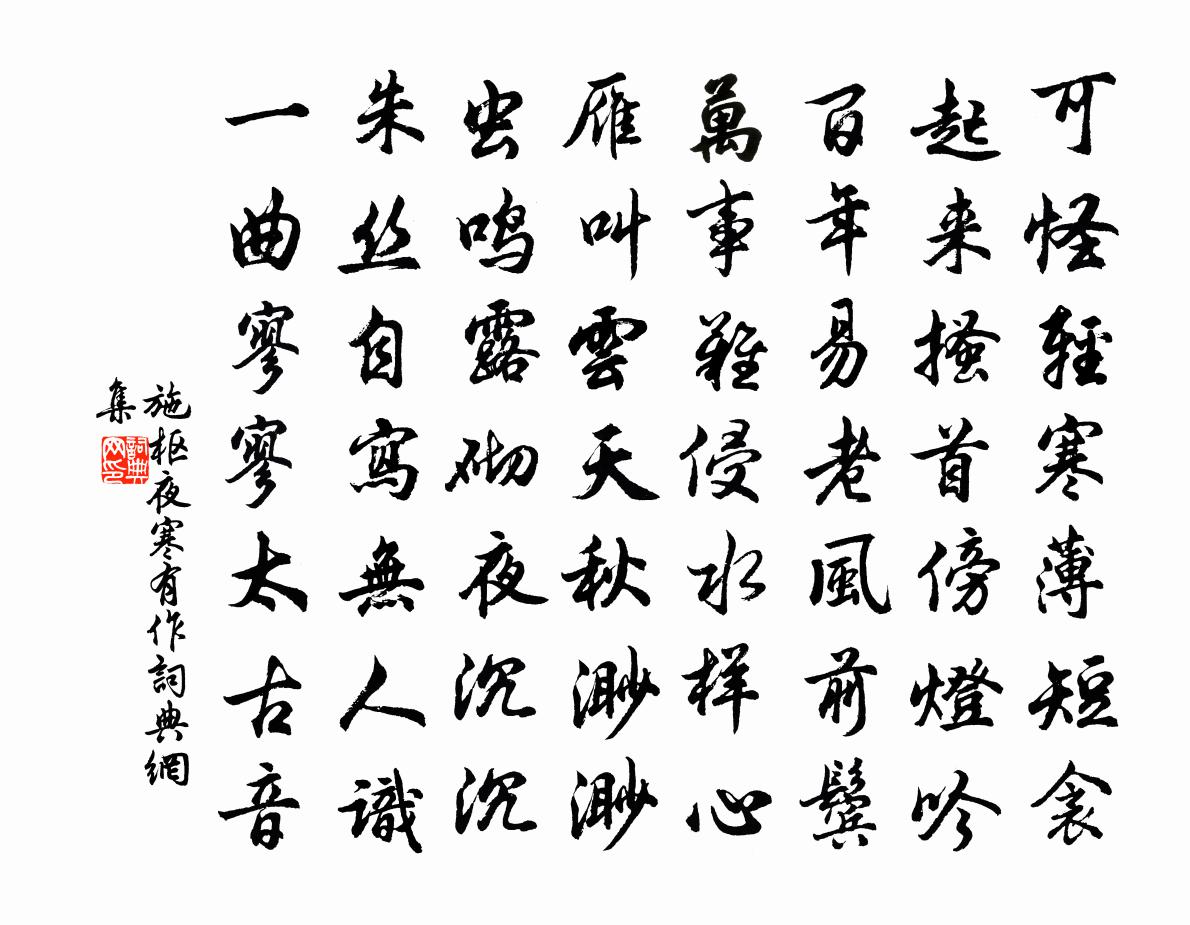 可怪輕寒薄短衾
起来搔首傍燈吟
百年易老風前鬓
萬事難侵水样心
雁叫雲天秋渺渺
虫鸣露砌夜沉沉
朱丝自寫無人識
一曲寥寥太古音
施枢夜寒有作詞典網
集
詞典网印